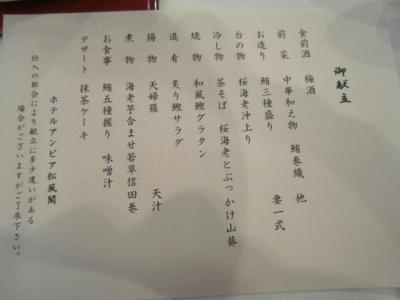 御献立
食前酒 梅酒
前菜 中華和え物 鮪巻織 他
お造り 鮪三種盛り 妻一式
台の物 桜海老沖上り
冷し物 茶そば 桜海老とぶっかけ山葵
焼物 和風鰹グラタン
進肴 炙り鰹サラダ
揚物 天婦羅 天汁
煮物 海老芋含ませ若草信田巻
お食事 鮪五種握り 味噌汁
デザート 抹茶ケーキ
ホテルアンビア松風閣
仕入の都合により献立に多少違いがある
場合がございますがご了承下さい。